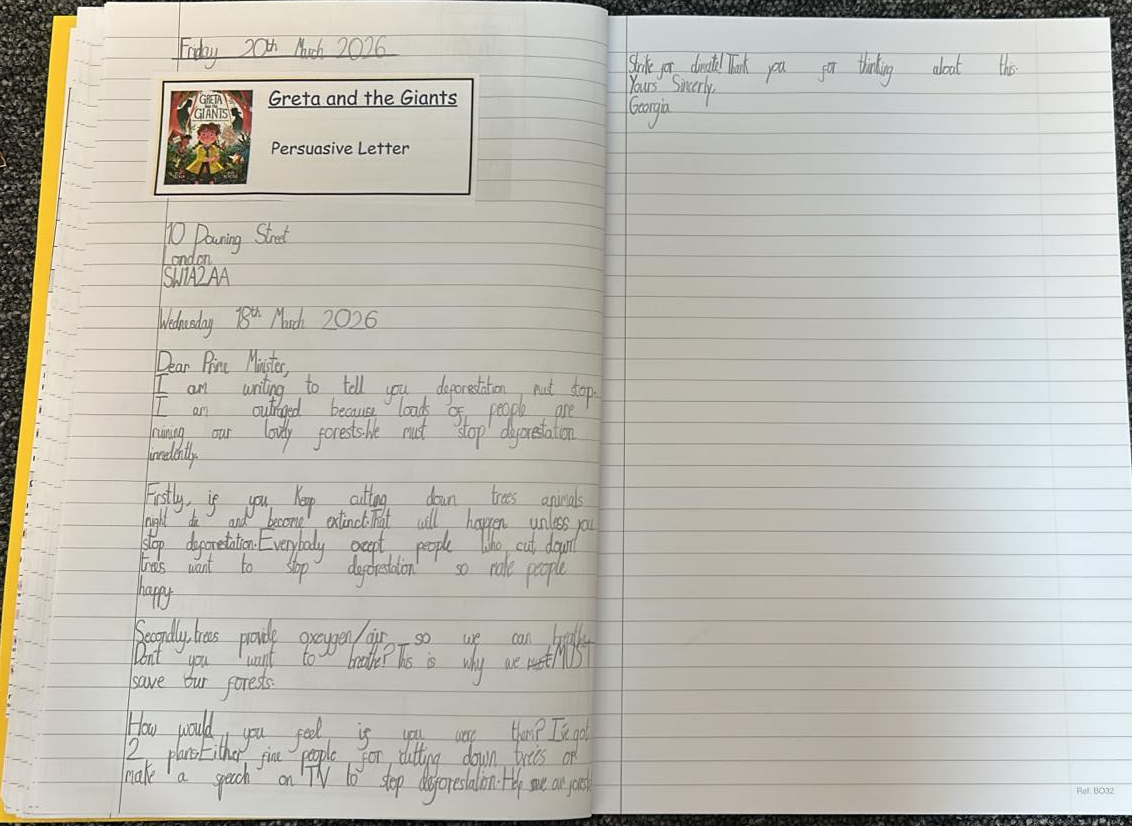 Friday 20th March 2026
GRETA AND THE GIANTS
Greta and the Giants
Persuasive Letter
10 Downing Street
London
SW1A2AA
Wednesday 18th March 2026
Dear Prime Minister,
I am writing to tell you deforestation must stop.
I am outraged because loads of people are
ruining our lovely forests.We must stop deforestation
immedently.
Firstly, if you Keep cutting down trees animals
might die and become extinct.That will happen unless you
stop deforestation.Everybody except people Who cut down
trees want to stop deforestation so make people
happy.
Secondly, trees provide oxeygen/air so we can breathe.
Don't you want to breathe? This is why we must MUST
save our forests.
How would you feel if you were them? I've got
2 plans.Either fine people for cutting down trees or
make a speech on TV to stop deforestation.Help save our forests!
Strike for climate! Thank you for thinking about this.
Yours Sincerly,
Georgia
Ref: BO32